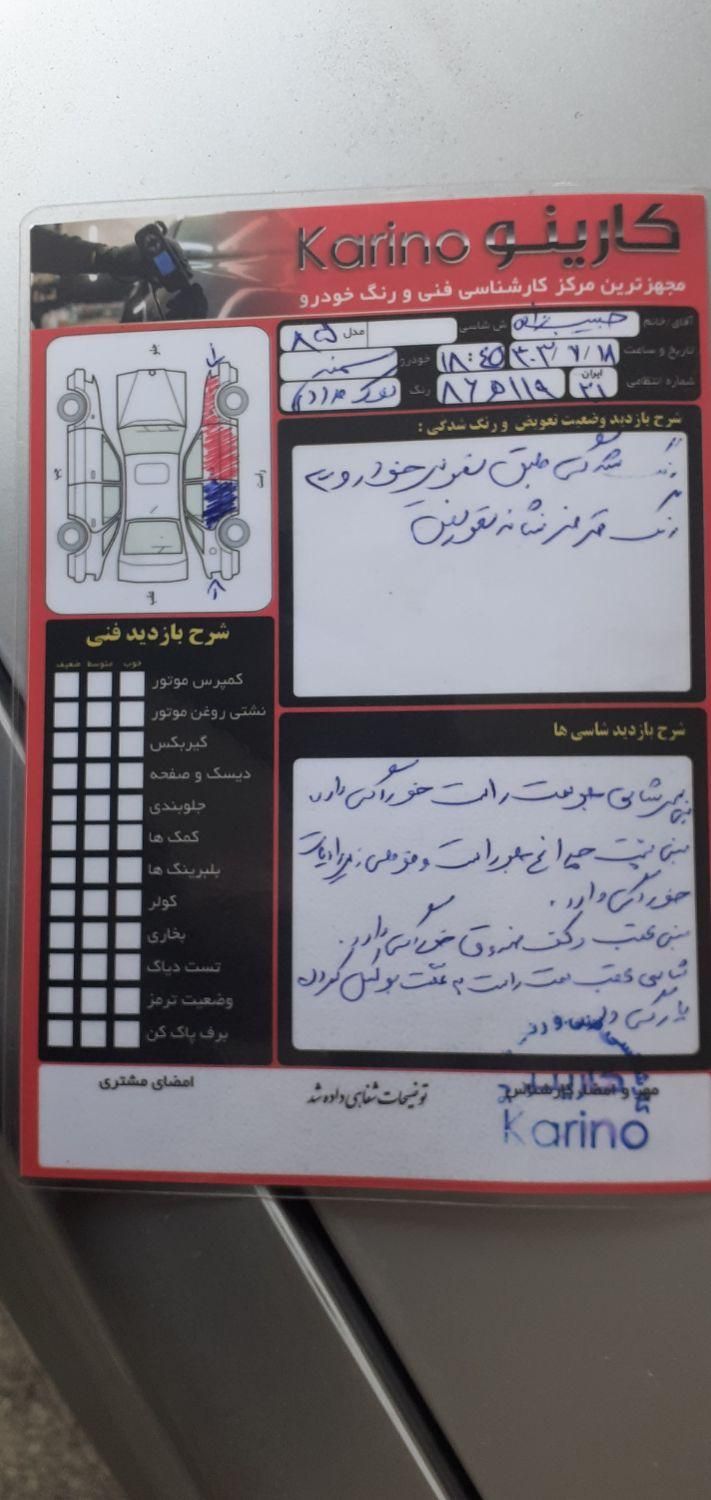 کارینو Karino
مجهزترین مرکز کارشناسی فنی و رنگ خودرو
آقای/خانم حبیب زاده ش شاسی مدل ۸۵
تاریخ و ساعت ۴۰۳/۷/۱۸ ۱۸:۴۵ خودرو سمند
شماره انتظامی ایران ۲۱ ۱۱۹ ۸۶ رنگ نوک مدادی
راست
شرح بازدید وضعیت تعویض و رنگ شدگی :
رنگ شدگی طبق
رنگ قرمز نشانه تعویض
شرح بازدید فنی
خوب متوسط ضعیف
کمپرس موتور
نشتی روغن موتور
گیربکس
دیسک و صفحه
جلوبندی
کمک ها
بلبرینگ ها
کولر
بخاری
تست دیاگ
وضعیت ترمز
برف پاک کن
شرح بازدید شاسی ها
شاسی جلو سمت راست خوردگی دارد
سینی پشت چراغ جلو راست و
خوردگی دارد.
سینی عقب کف صندوق خوردگی دارد.
شاسی عقب سمت راست به علت بوکسل کردن
پارگی دارد
مهر و امضاء کارشناس
توضیحات شفاهی داده شد
امضای مشتری
Karino